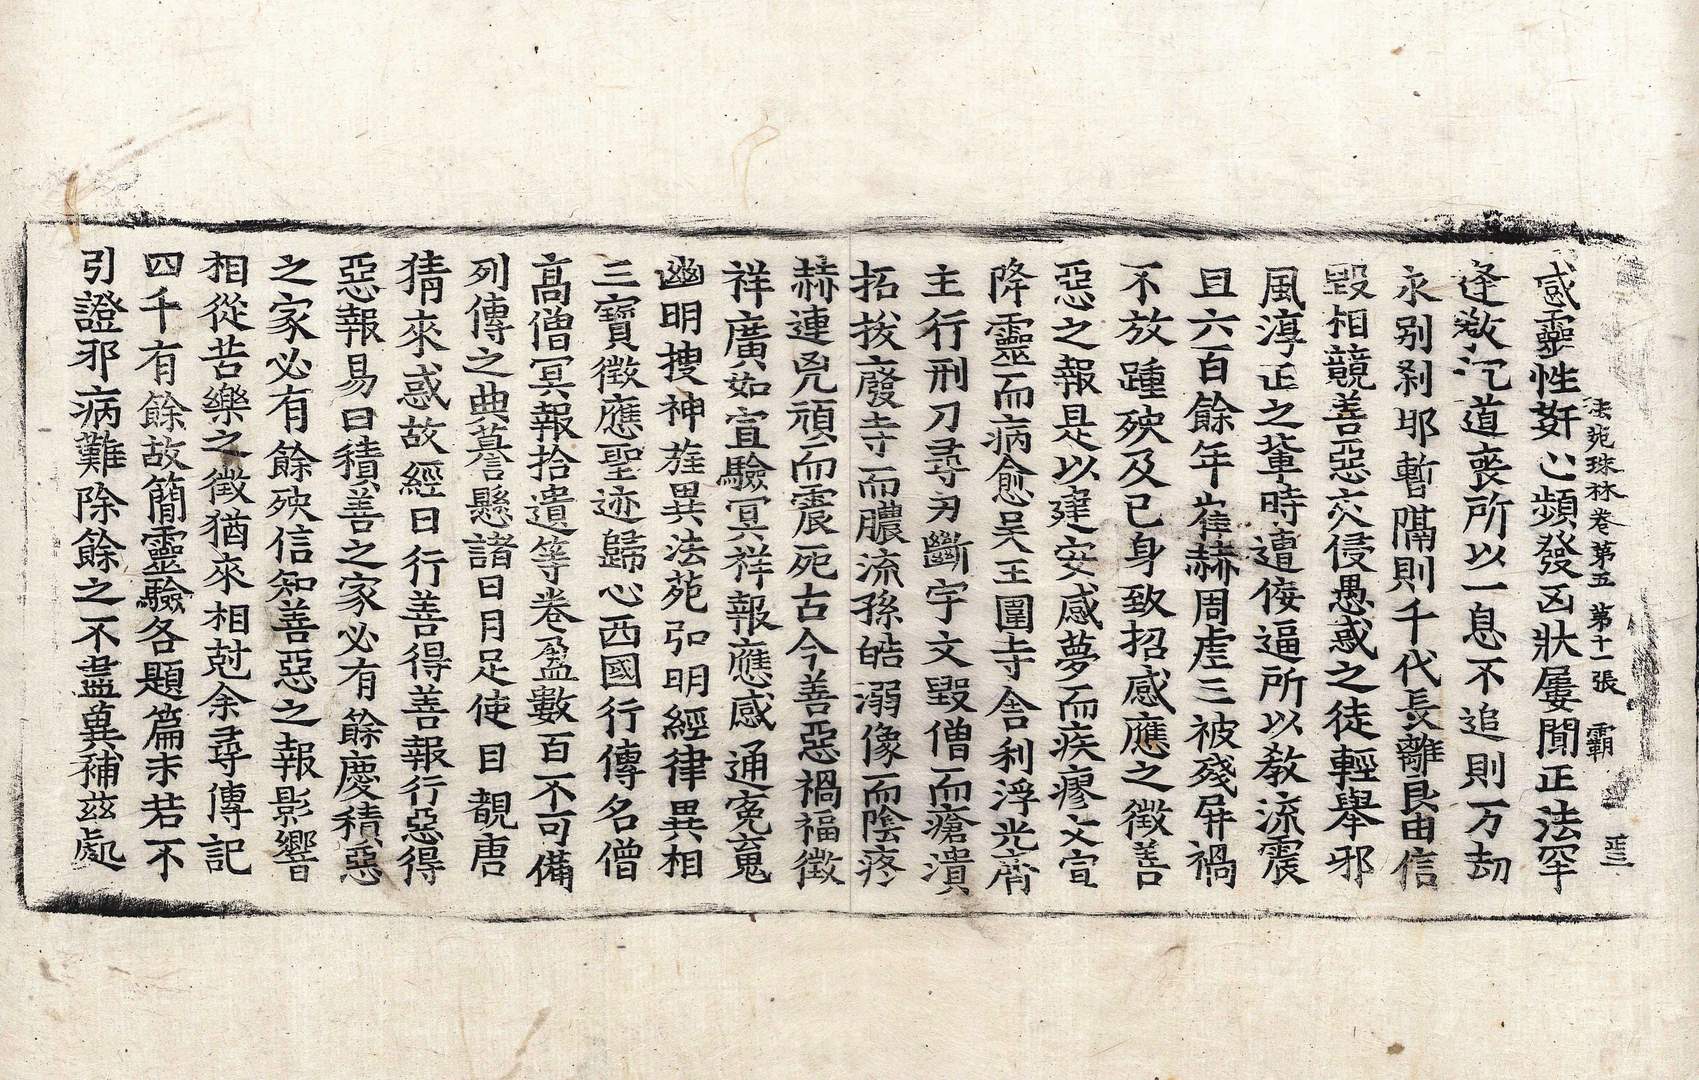 法苑珠林卷第五 第十一張 霸
惑靈性姧心頻發凶狀屢聞正法罕
逢教沉道喪所以一息不追則万劫
永别刹那暫隔則千代長離良由信
毀相競善惡灾侵愚惑之徒輕舉邪
風淳正之輩時遭佞逼所以教流震
旦六百餘年崔赫周虐三被殘屏禍
不放踵殃及已身致招感應之徵善
惡之報是以建安感夢而疾瘳文宣
降靈而病愈吴王圍寺舎利浮光齊
主行刑刀尋刃斷宇文毀僧而瘡潰
拓拔廢寺而膿流孫皓溺像而陰疼
赫連兇頑而震死古今善惡禍福徵
祥廣如宣驗冥祥報應感通寃䰟
幽明搜神㫌異法苑弘明經律異相
三寶徵應聖迹歸心西國行傳名僧
髙僧冥報拾遺等卷盈數百不可備
列傳之典謩懸諸日月足使目覩唐
猜來惑故經曰行善得善報行惡得
惡報易曰積善之家必有餘慶積惡
之家必有餘殃信知善惡之報影響
相從苦樂之徵猶來相尅余尋傳記
四千有餘故簡靈驗各題篇末若不
引證邪病難除餘之不盡兾補茲處